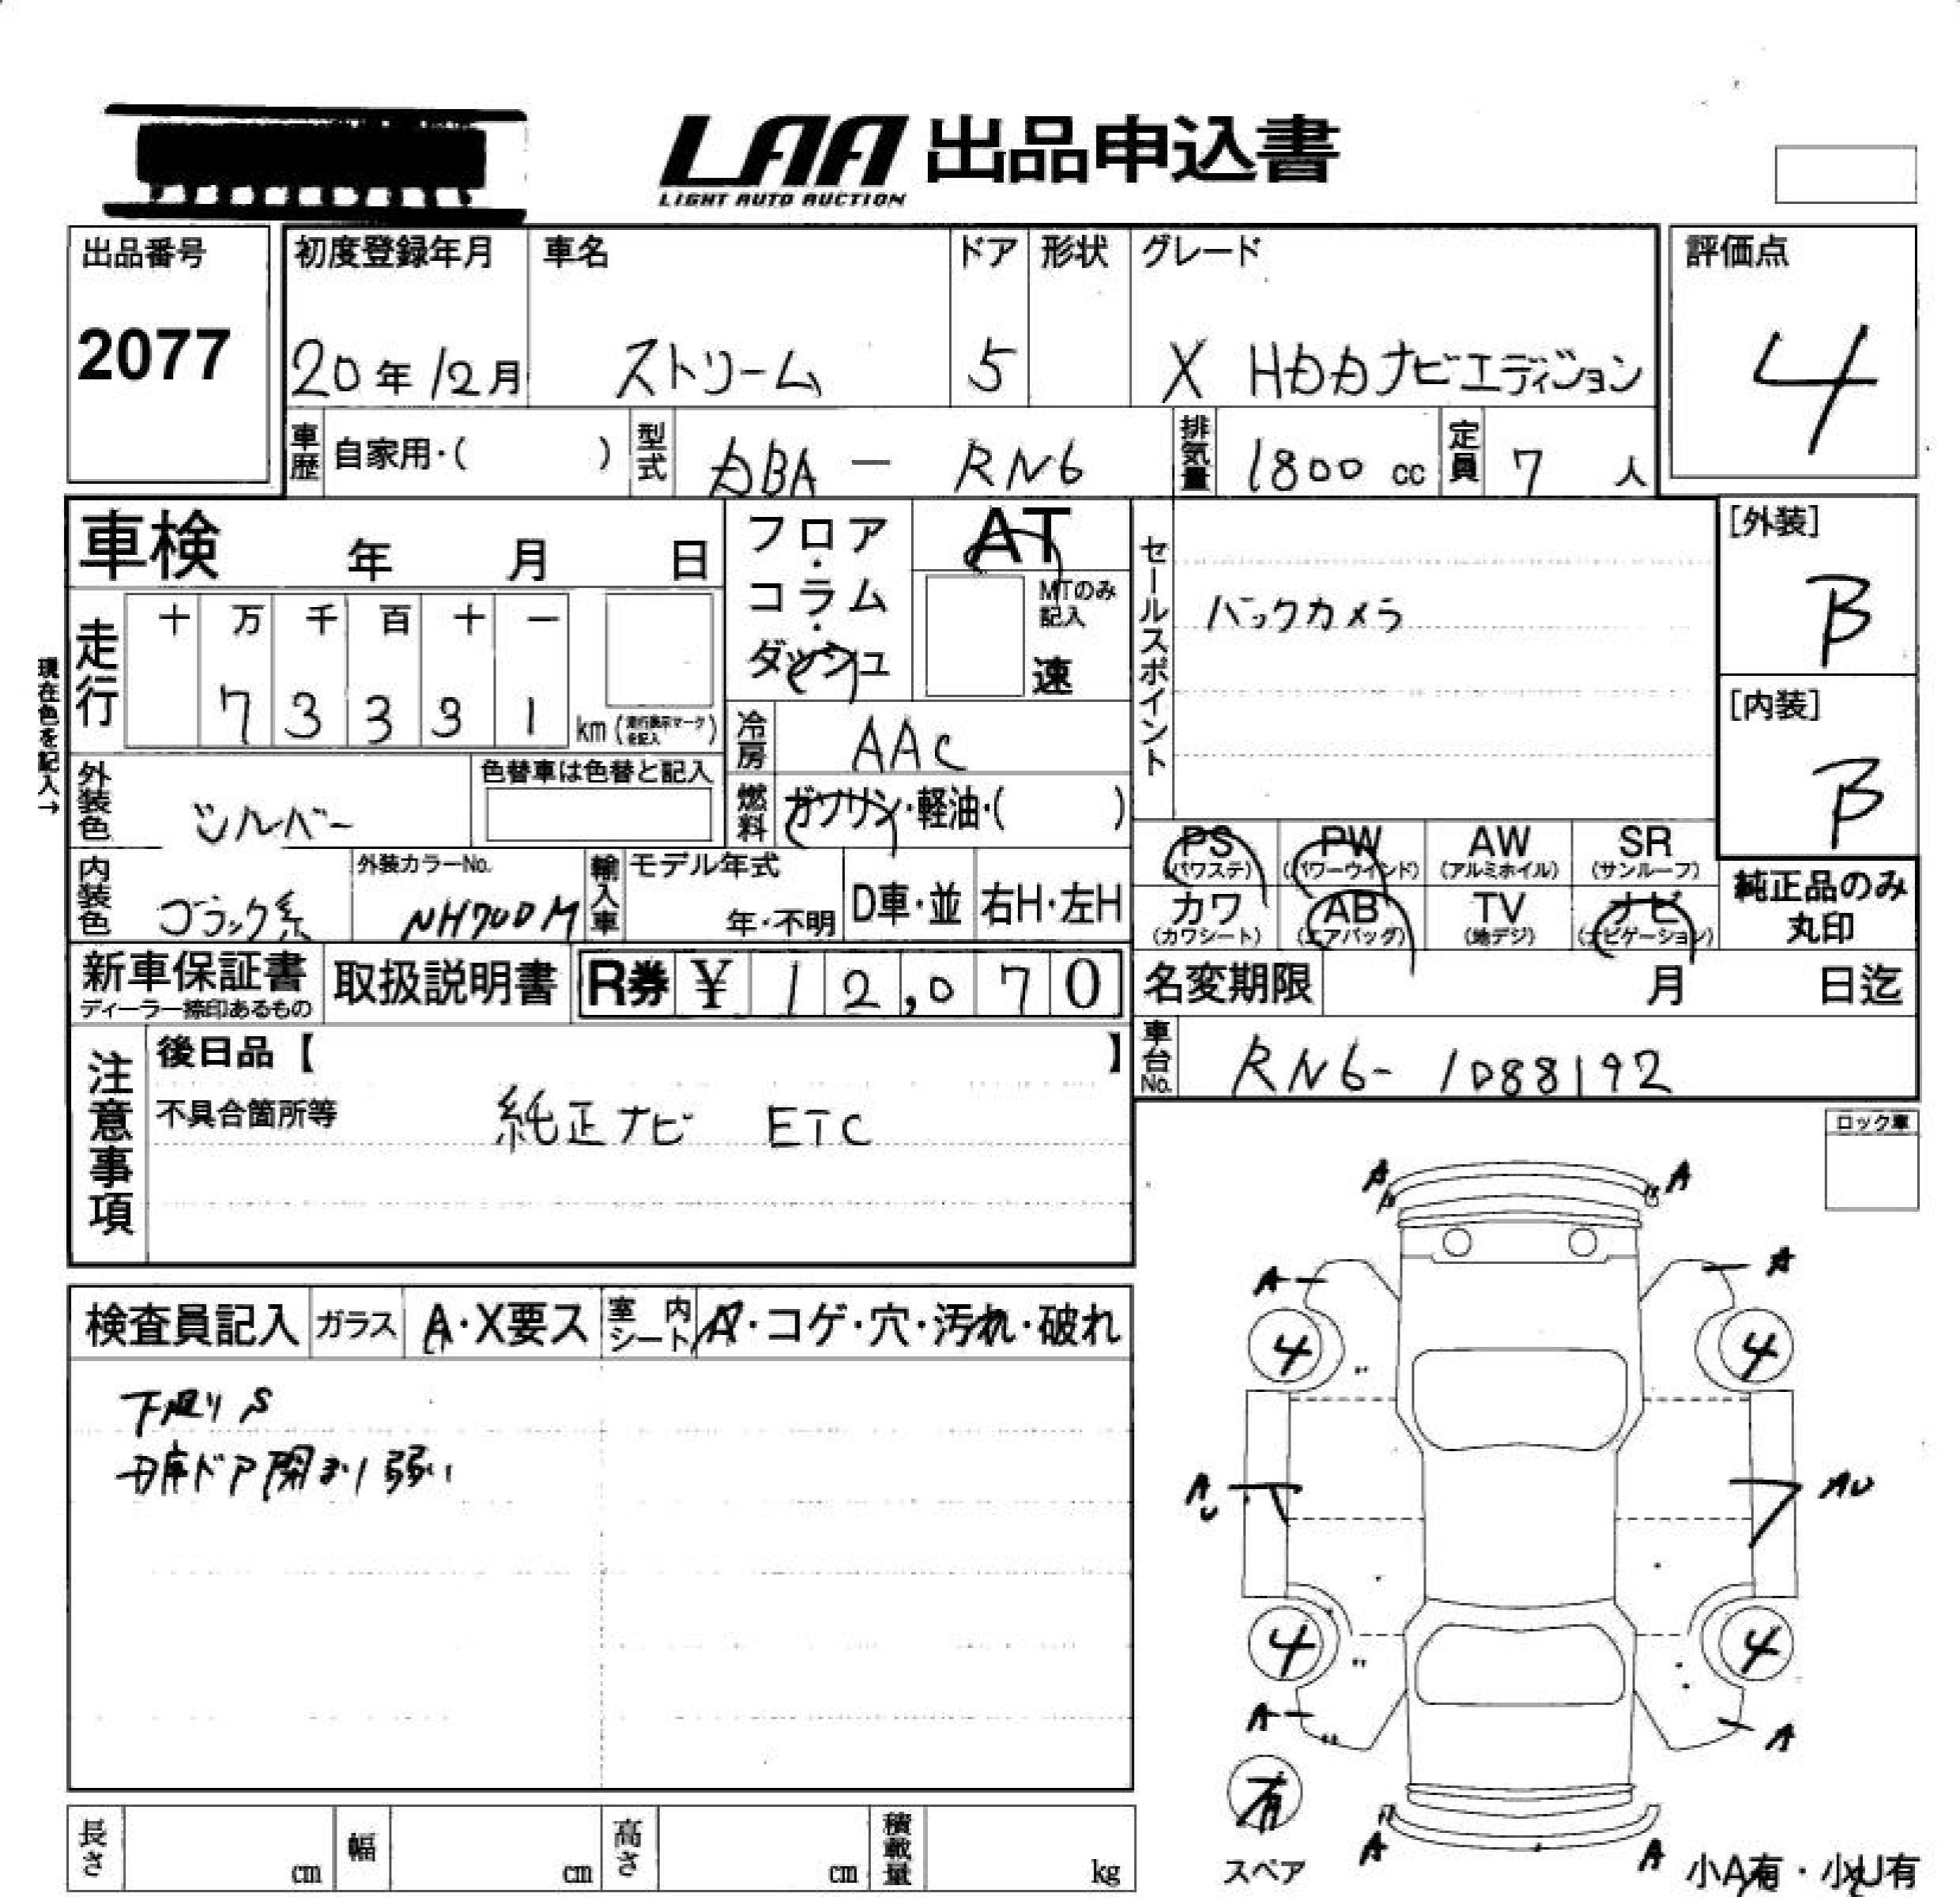 LAA 出品申込書
LIGHT AUTO AUCTION
出品番号
2077
初度登録年月
20年12月
車名
ストリーム
ドア
5
形状
グレード
X HDDナビエディション
評価点
4
車歴 自家用・( )
型式 DBA - RN6
排気量 1800 cc
定員 7 人
車検 年 月 日
走行 十 万 千 百 十 一
7 3 3 3 1 km (走行表示マークを記入)
現在色を記入→
フロア・コラム・ダッシュ
AT
MTのみ記入
速
冷房 AAC
燃料 ガソリン・軽油・( )
セールスポイント
バックカメラ
[外装]
B
[内装]
B
外装色 シルバー
色替車は色替と記入
内装色 ブラック系
外装カラーNo.
NH700M
輸入車 モデル年式
年・不明
D車・並
右H・左H
PS (パワステ)
PW (パワーウインド)
AW (アルミホイル)
SR (サンルーフ)
カワ (カワシート)
AB (エアバッグ)
TV (地デジ)
ナビ (ナビゲーション)
純正品のみ丸印
新車保証書
ディーラー捺印あるもの
取扱説明書
R券 ¥ 12,070
名変期限 月 日迄
車台No. RN6-1088192
注意事項
後日品【 】
不具合箇所等
純正ナビ ETC
ロック車
検査員記入 ガラス A・X要ス 室内シート A・コゲ・穴・汚れ・破れ
下廻りS
ドア閉まり弱い
A A
A A
4 4
AU AU
4 4
A A
有
スペア
A A
小A有・小U有
長さ cm
幅 cm
高さ cm
積載量 kg